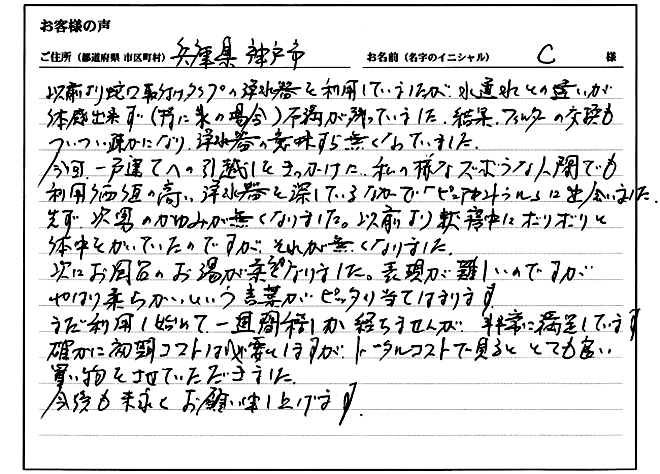 お客様の声
ご住所（都道府県 市区町村） 兵庫県 神戸市 お名前（名字のイニシャル） C 様
以前より蛇口取付けタイプの浄水器を利用していましたが、水道水との違いが
体感出来ず（特に米の場合）不満が残っていました。結果、フィルターの交換も
ついつい疎かになり、浄水器の意味すら無くなっていました。
今回、一戸建てへの引越しをきっかけに、私の様なズボラな人間でも
利用価値の高い浄水器を探しているなかで「ピュアセントラル」に出会いました。
先ず、次男のかゆみが無くなりました。以前より就寝中にボリボリと
体中をかいていたのですが、それが無くなりました。
次にお風呂のお湯が柔らかくなりました。表現が難しいのですが
やはり柔らかいという言葉がピッタリ当てはまります。
まだ利用し始めて一週間程しか経ちませんが、非常に満足しています。
確かに初期コストは必要としますが、トータルコストで見ると、とても良い
買い物をさせていただきました。
今後も末永くお願い申し上げます。